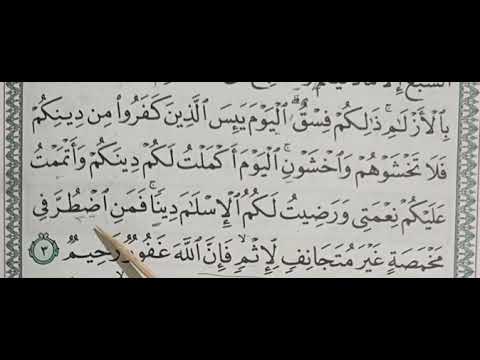 بِٱلۡأَزۡلَٰمِۚ ذَٰلِكُمۡ فِسۡقٌۗ ٱلۡيَوۡمَ يَئِسَ ٱلَّذِينَ كَفَرُواْ مِن دِينِكُمۡ
فَلَا تَخۡشَوۡهُمۡ وَٱخۡشَوۡنِۚ ٱلۡيَوۡمَ أَكۡمَلۡتُ لَكُمۡ دِينَكُمۡ وَأَتۡمَمۡتُ
عَلَيۡكُمۡ نِعۡمَتِي وَرَضِيتُ لَكُمُ ٱلۡإِسۡلَٰمَ دِينٗاۚ فَمَنِ ٱضۡطُرَّ فِي
مَخۡمَصَةٍ غَيۡرَ مُتَجَانِفٖ لِّإِثۡمٖ فَإِنَّ ٱللَّهَ غَفُورٞ رَّحِيمٞ ٣